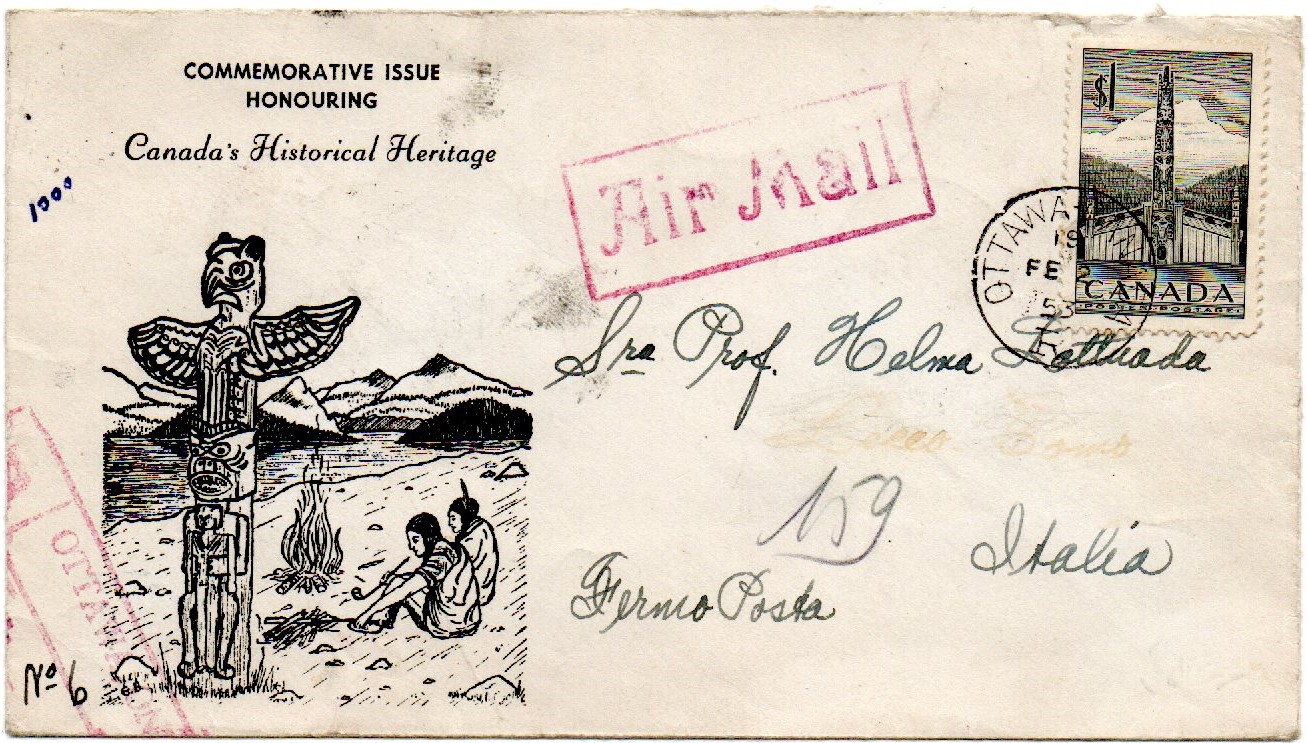 COMMEMORATIVE ISSUE
HONOURING
Canada's Historical Heritage
1000
Air Mail
$1
CANADA
POSTES POSTAGE
OTTAWA
19
FE 2
53
Sra Prof. Helma
159
Italia
Fermo Posta
OTTAWA ON
No 6